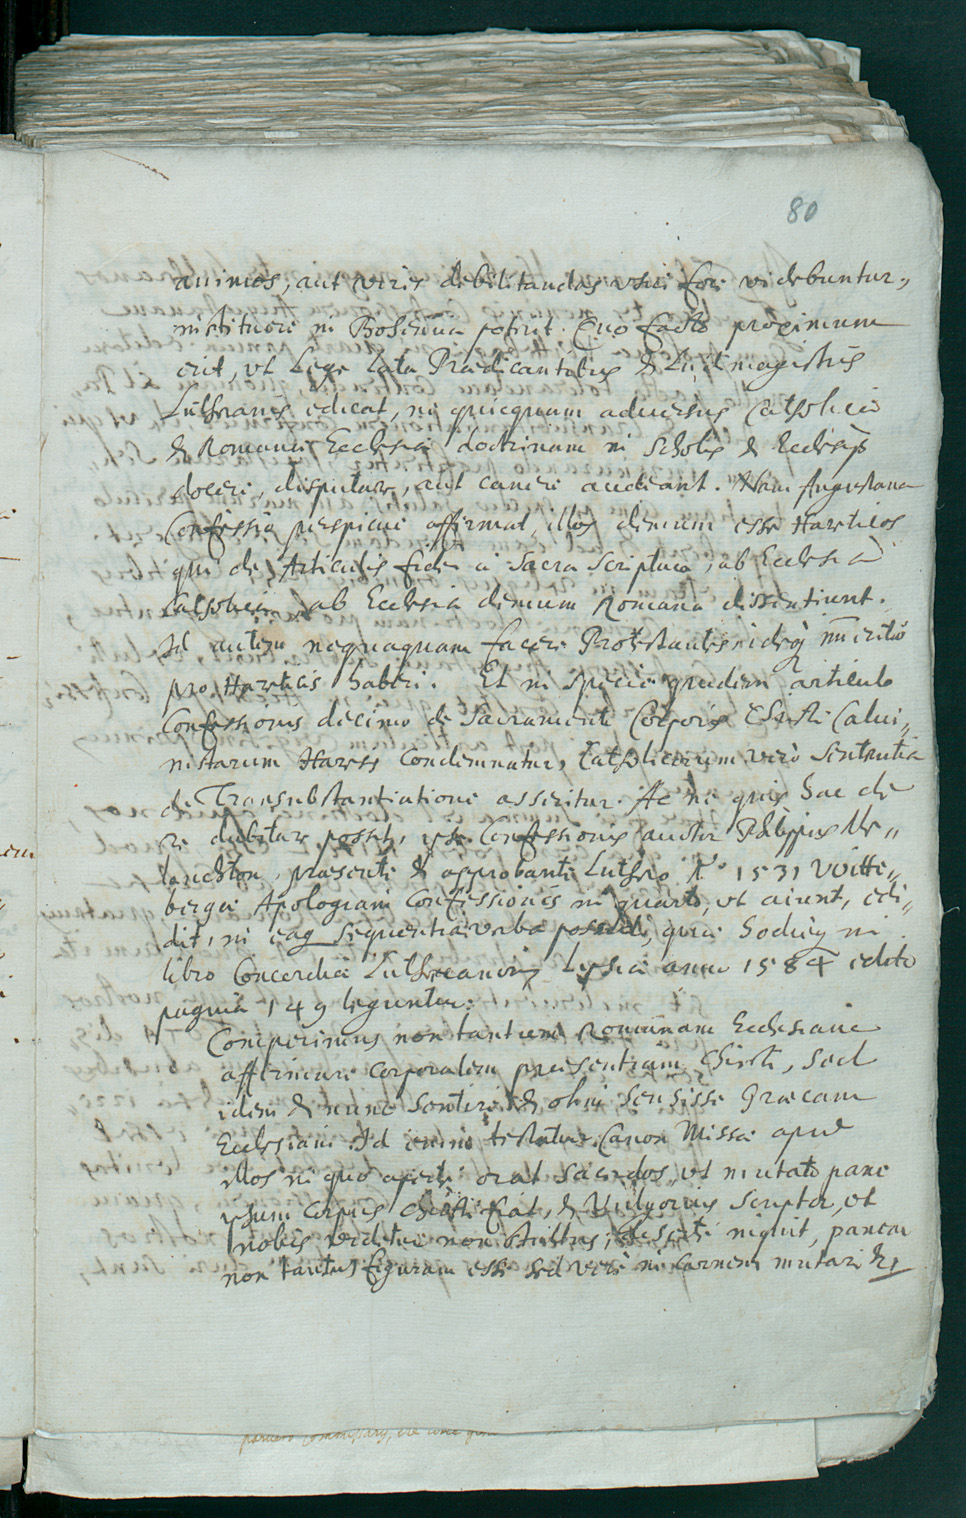 80
animos, aut vires debilitandas usui fore videbuntur,
instituere in Bohemia poterit. Quo facto proximum
erit, ut Lege lata Prædicantibus & Ludimagistris
Lutheranis edicat, ne quicquam adversus Catholicæ
& Romanæ Ecclesiæ doctrinam in Scholis & Ecclesiis
docere, disputare, aut canere audeant. Nam Augustana
Confessio perspicue affirmat, illos demum esse Hæreticos
qui de Articulis fidei a Sacra Scriptura, ab Ecclesia
Catholica, ab Ecclesia demum Romana dissentiunt.
Id autem nequaquam facere Protestantes ideoq immerito
pro Hæreticis haberi. Et in specie quidem articulo
Confessionis decimo de Sacramento Corporis Christi Calvi„
nistarum Hæresis Condemnatur, Catholicorum vero Sententia
de Transubstantiatione asseritur. Ac ne quis hac de
re dubitare possit, ipse Confessionis auctor Philippus Me„
lanchton, præsente & approbante Luthero Aº 1531 Witte„
bergæ Apologiam Confessionis in quarto, ut aiunt, edi„
dit, in eaq sequentia verba posuit, quæ hodieq in
libro Concordiæ Lutheranorum Lipsiæ anno 1584 edito
pagina 149 leguntur:
Comperimus non tantum Romanam Ecclesiam
affirmare corporalem præsentiam Christi, sed
idem & nunc sentire & olim sensisse Græcam
Ecclesiam. Id enim testatur Canon Missæ apud
illos in quo aperte orat sacerdos, ut mutato pane
ipsum Corpus Christi fiat, & Vulgarius Scriptor, ut
nobis videtur non stultus, disserte inquit, panem
non tantum figuram esse sed vere in Carnem mutari &c